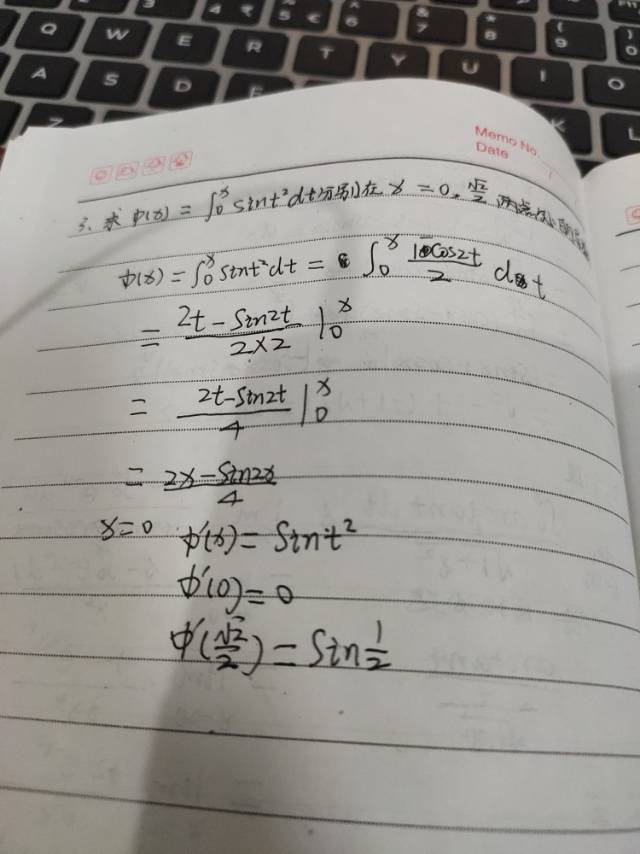 Q W E R T Y U I O
A S D F
Memo No.
Date
3. 求 Φ(x) = ∫₀ˣ sint²dt 分别在 x = 0, √2/2 两点处的
Φ(x) = ∫₀ˣ sint²dt = ∫₀ˣ (1-cos2t)/2 dt
= (2t - sin2t)/(2×2) |₀ˣ
= (2t-sin2t)/4 |₀ˣ
= (2x-sin2x)/4
x=0 Φ'(x) = sint²
Φ'(0) = 0
Φ'(√2/2) = sin 1/2